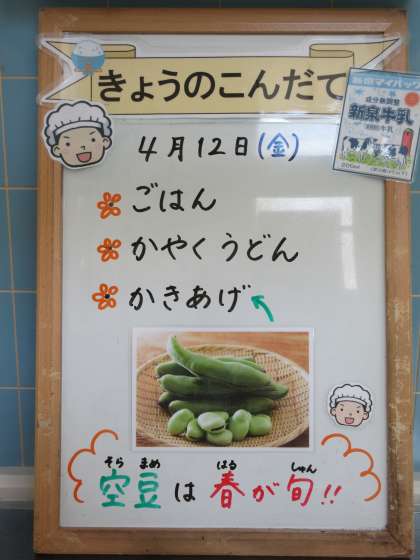 きょうのこんだて
新泉マイパック
成分無調整
新泉牛乳
200ml
4月12日(金)
ごはん
かやくうどん
かきあげ
そら まめ はる しゅん
空豆は春が旬!!